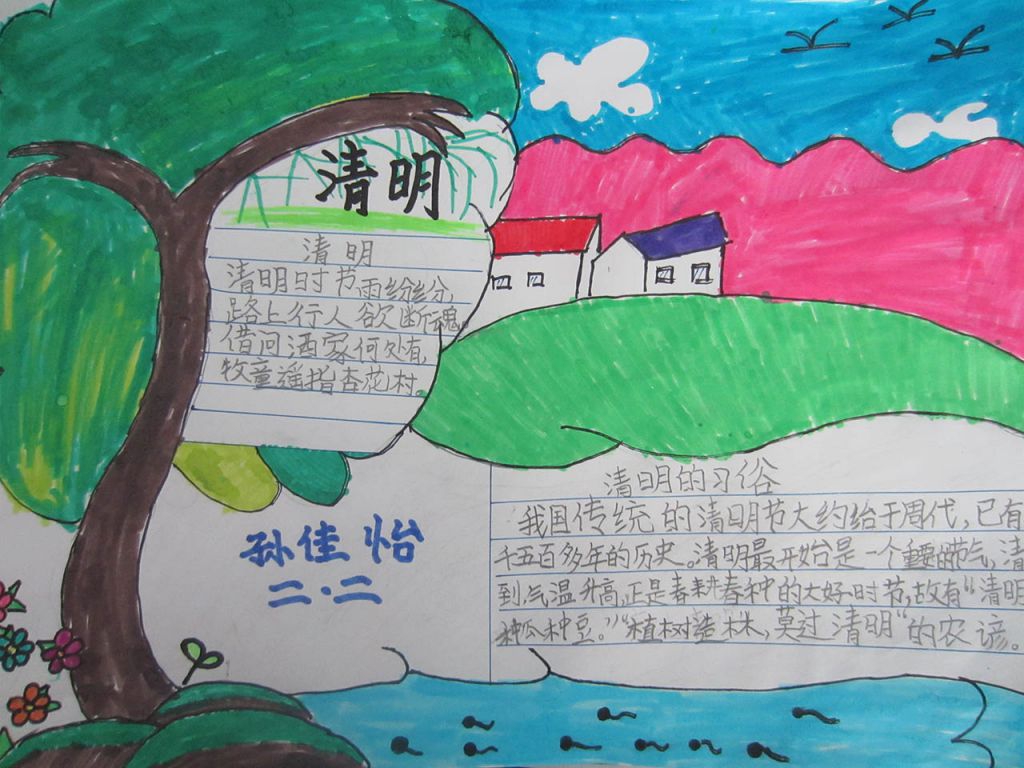 清明
清明
清明时节雨纷纷，
路上行人欲断魂。
借问酒家何处有，
牧童遥指杏花村。
孙佳怡
二·二
清明的习俗
我国传统的清明节大约始于周代，已有
千五百多年的历史。清明最开始是一个重要的节气，清
到，气温升高，正是春耕春种的大好时节，故有“清明
种瓜种豆。”“植树造林，莫过清明”的农谚。